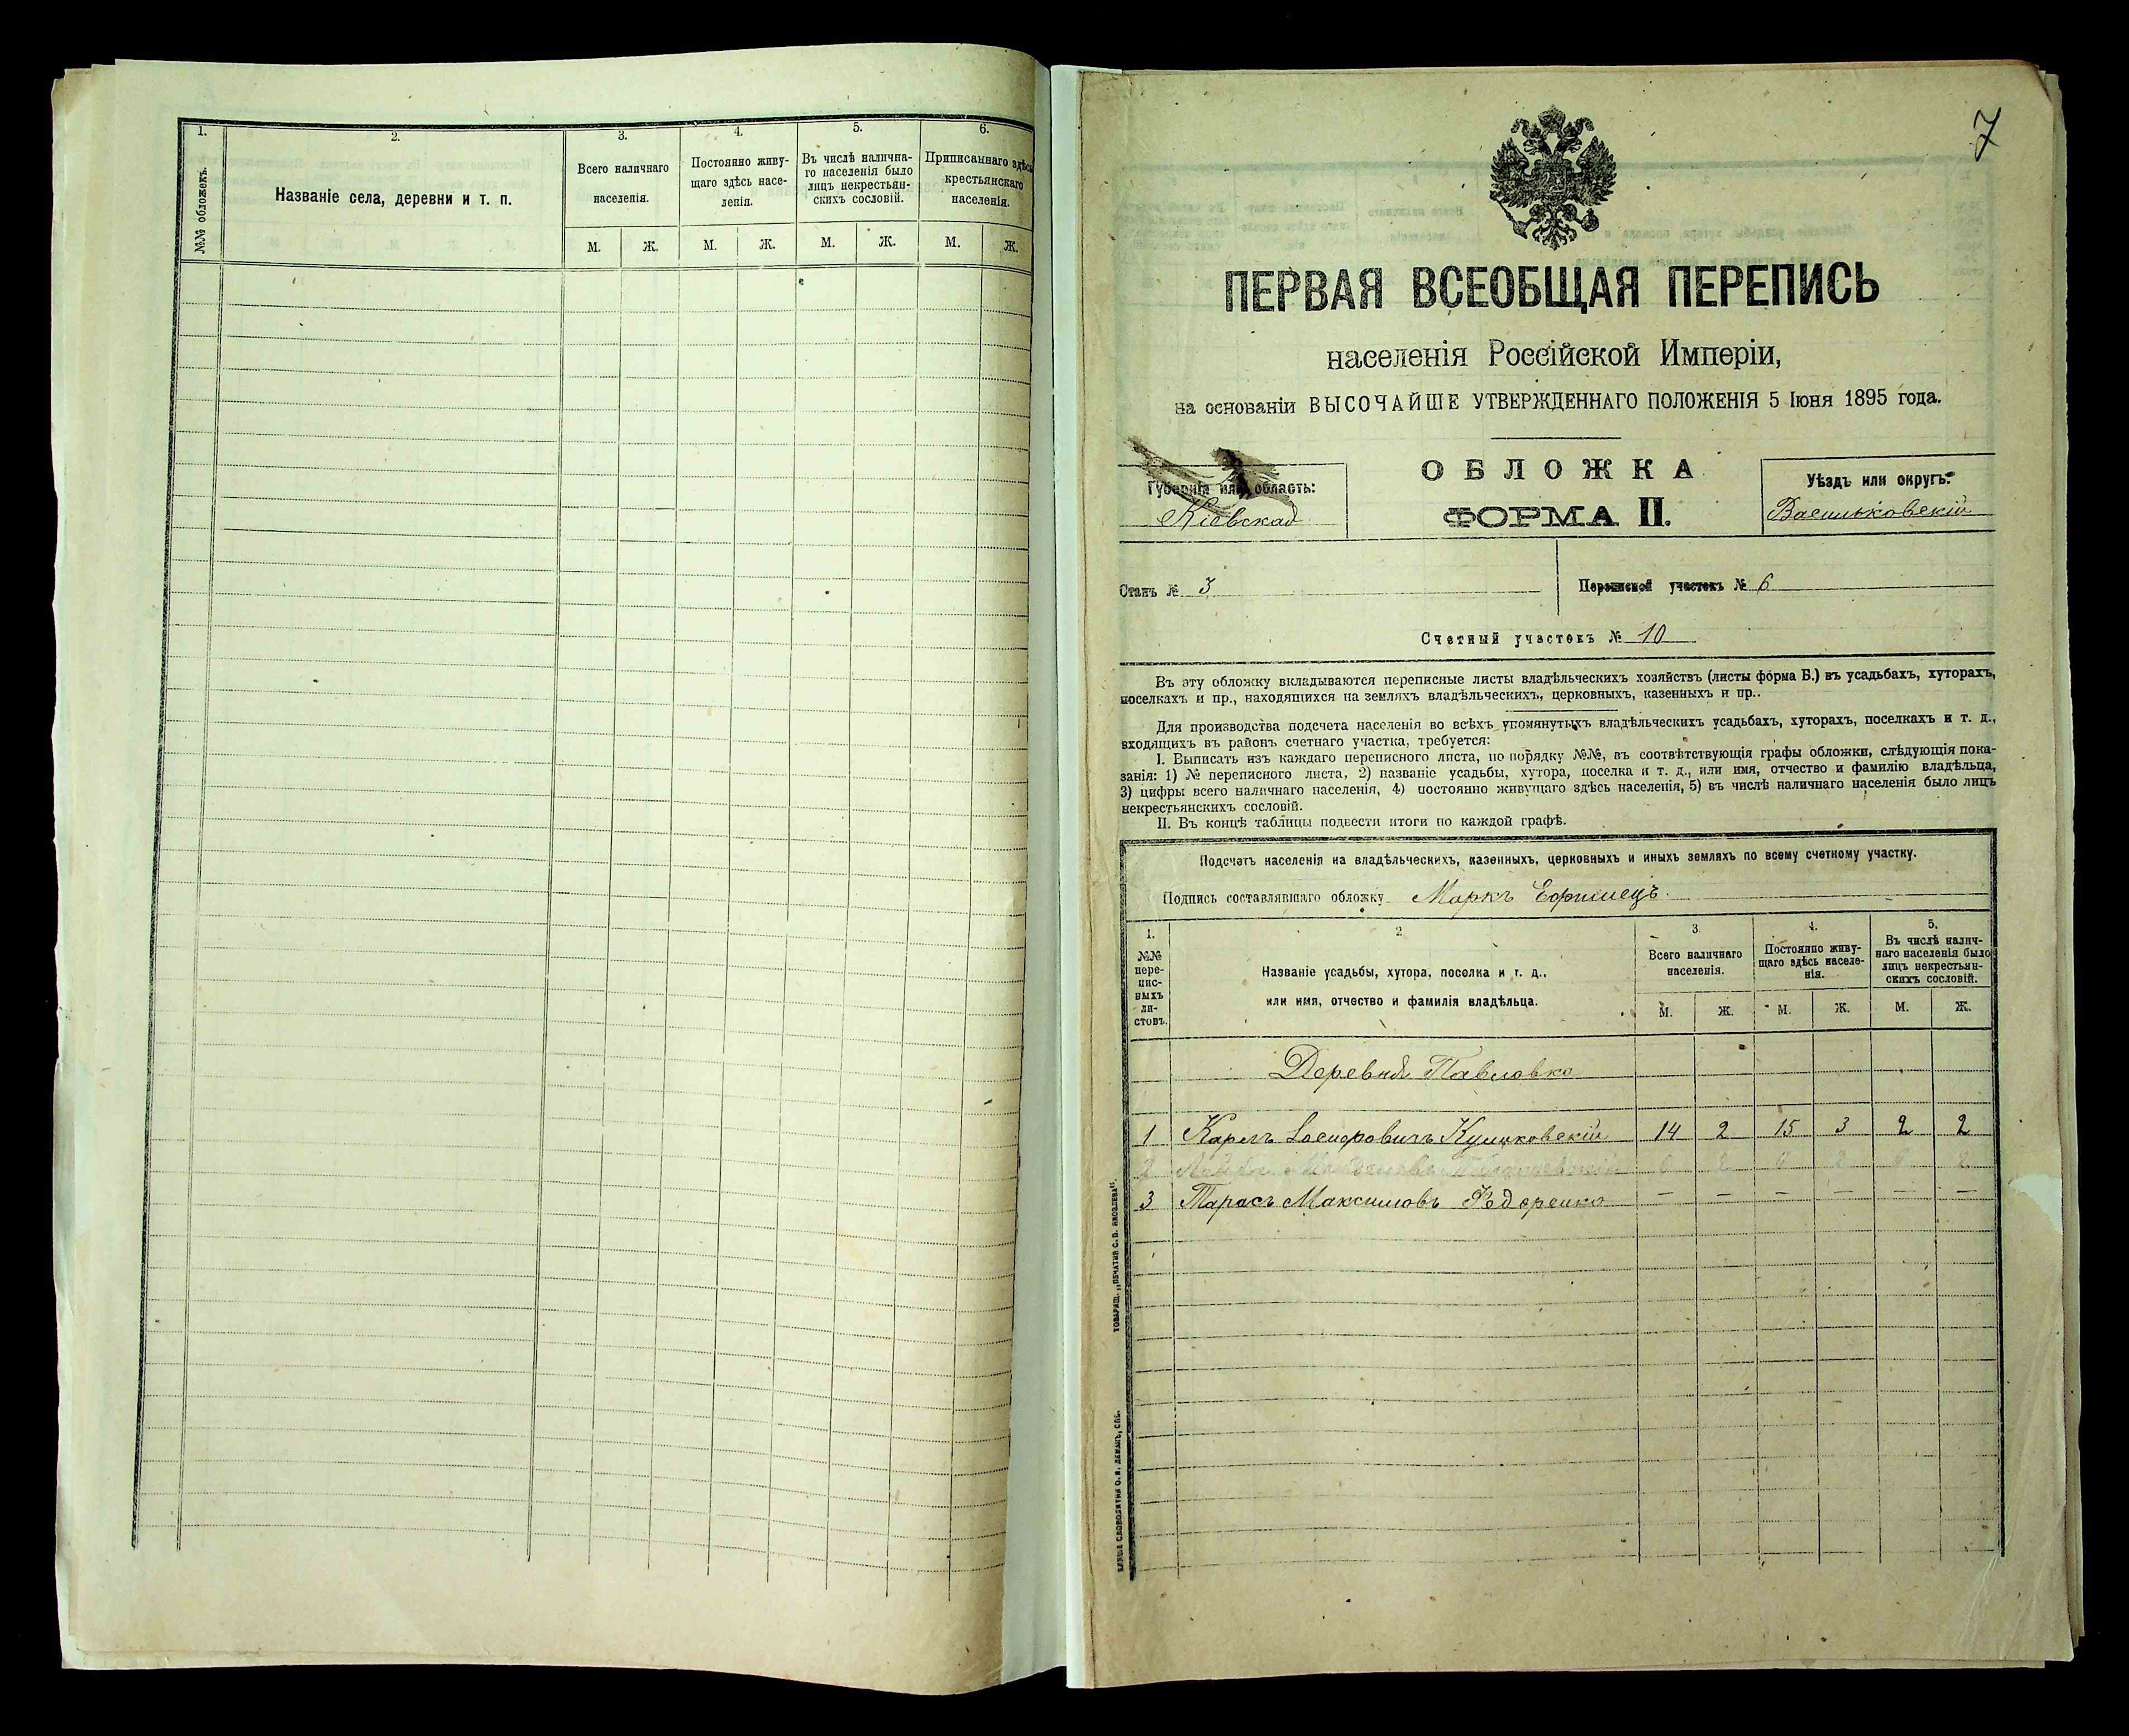 1.
2.
3.
4.
5.
6.
№№ обложекъ.
Названіе села, деревни и т. п.
Всего наличнаго
населенія.
Постоянно живу-
щаго здѣсь насе-
ленія.
Въ числѣ налична-
го населенія было
лицъ некрестьян-
скихъ сословій.
Приписаннаго здѣсь
крестьянскаго
населенія.
М. Ж. М. Ж. М. Ж. М. Ж.
7
ПЕРВАЯ ВСЕОБЩАЯ ПЕРЕПИСЬ
населенія Россійской Имперіи,
на основаніи ВЫСОЧАЙШЕ УТВЕРЖДЕННАГО ПОЛОЖЕНІЯ 5 Іюня 1895 года.
Губернія или область:
Кіевская
ОБЛОЖКА
ФОРМА II.
Уѣздъ или округъ:
Васильковскій
Станъ № 3
Переписной участокъ № 6
Счетный участокъ № 10
Въ эту обложку вкладываются переписные листы владѣльческихъ хозяйствъ (листы форма Б.) въ усадьбахъ, хуторахъ,
поселкахъ и пр., находящихся на земляхъ владѣльческихъ, церковныхъ, казенныхъ и пр..
Для производства подсчета населенія во всѣхъ упомянутыхъ владѣльческихъ усадьбахъ, хуторахъ, поселкахъ и т. д.,
входящихъ въ районъ счетнаго участка, требуется:
I. Выписать изъ каждаго переписного листа, по порядку №№, въ соотвѣтствующія графы обложки, слѣдующія пока-
занія: 1) № переписного листа, 2) названіе усадьбы, хутора, поселка и т. д., или имя, отчество и фамилію владѣльца,
3) цифры всего наличнаго населенія, 4) постоянно живущаго здѣсь населенія, 5) въ числѣ наличнаго населенія было лицъ
некрестьянскихъ сословій.
II. Въ концѣ таблицы подвести итоги по каждой графѣ.
Подсчетъ населенія на владѣльческихъ, казенныхъ, церковныхъ и иныхъ земляхъ по всему счетному участку.
Подпись составлявшаго обложку Маркъ Ефимецъ
1.
2
3
4.
5.
№№
пере-
пис-
ныхъ
ли-
стовъ.
Названіе усадьбы, хутора, поселка и т. д.,
или имя, отчество и фамилія владѣльца.
Всего наличнаго
населенія.
Постоянно живу-
щаго здѣсь населе-
нія.
Въ числѣ налич-
наго населенія было
лицъ некрестьян-
скихъ сословій.
М. Ж. М. Ж. М. Ж.
Деревня Павловка
1 Карлъ Куликовскій 14 2 15 3 2 2
2
3 Тарасъ Максимовъ Федоренко — — — — — —
ТОВАРИЩ. „ПЕЧАТНЯ С. П. ЯКОВЛЕВА“.
СЛОВОЛИТНИ О. И. ЛЕМАНЪ, СПБ.